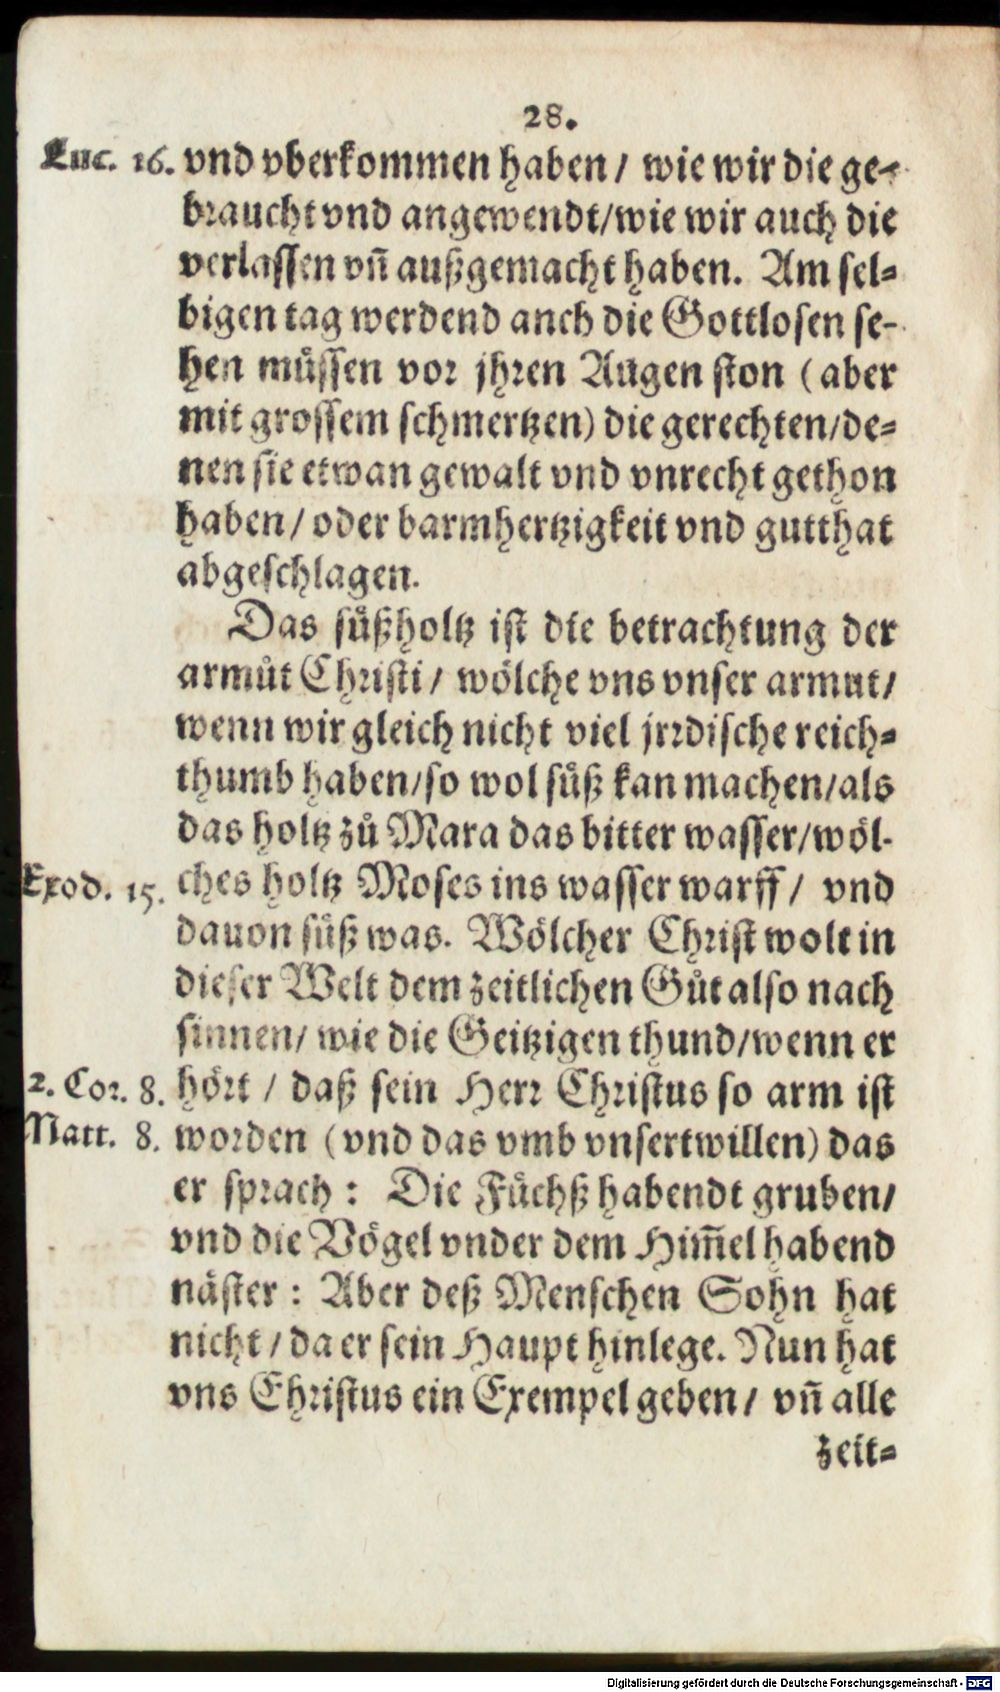 28.
Luc. 16. vnd vberkommen haben / wie wir die ge-
braucht vnd angewendt/wie wir auch die
verlassen vn̄ außgemacht haben. Am sel-
bigen tag werdend anch die Gottlosen se-
hen müssen vor jhren Augen ston (aber
mit grossem schmertzen) die gerechten/de-
nen sie etwan gewalt vnd vnrecht gethon
haben / oder barmhertzigkeit vnd gutthat
abgeschlagen.
Das süßholtz ist die betrachtung der
armůt Christi / wölche vns vnser armut/
wenn wir gleich nicht viel jrrdische reich-
thumb haben/so wol süß kan machen/als
das holtz zů Mara das bitter wasser/wöl-
Exod. 15. ches holtz Moses ins wasser warff / vnd
dauon süß was. Wölcher Christ wolt in
dieser Welt dem zeitlichen Gůt also nach
sinnen/ wie die Geitzigen thund/wenn er
2. Cor. 8. hört / daß sein Herr Christus so arm ist
Matt. 8. worden (vnd das vmb vnsertwillen) das
er sprach : Die Füchß habendt gruben/
vnd die Vögel vnder dem Him̄el habend
näster : Aber deß Menschen Sohn hat
nicht / da er sein Haupt hinlege. Nun hat
vns Christus ein Exempel geben / vn̄ alle
zeit-
Digitalisierung gefördert durch die Deutsche Forschungsgemeinschaft - DFG